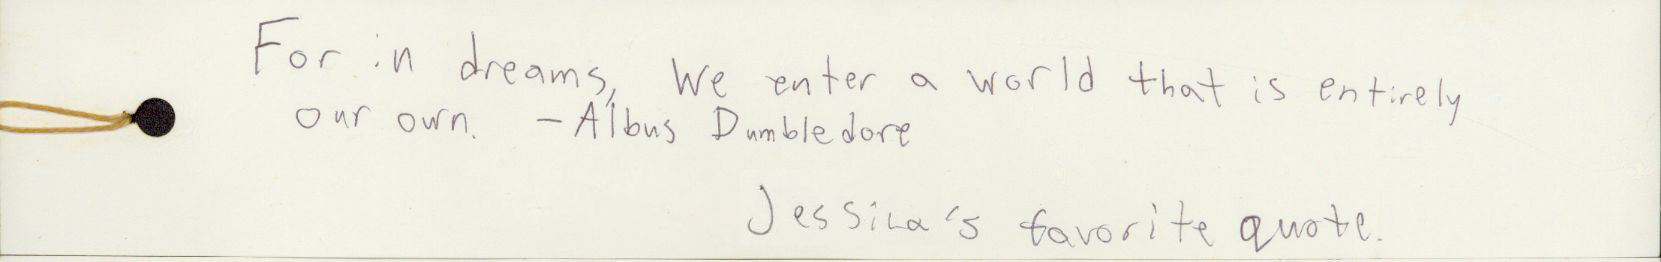 For in dreams, We enter a world that is entirely
our own. - Albus Dumbledore
Jessica's favorite quote.